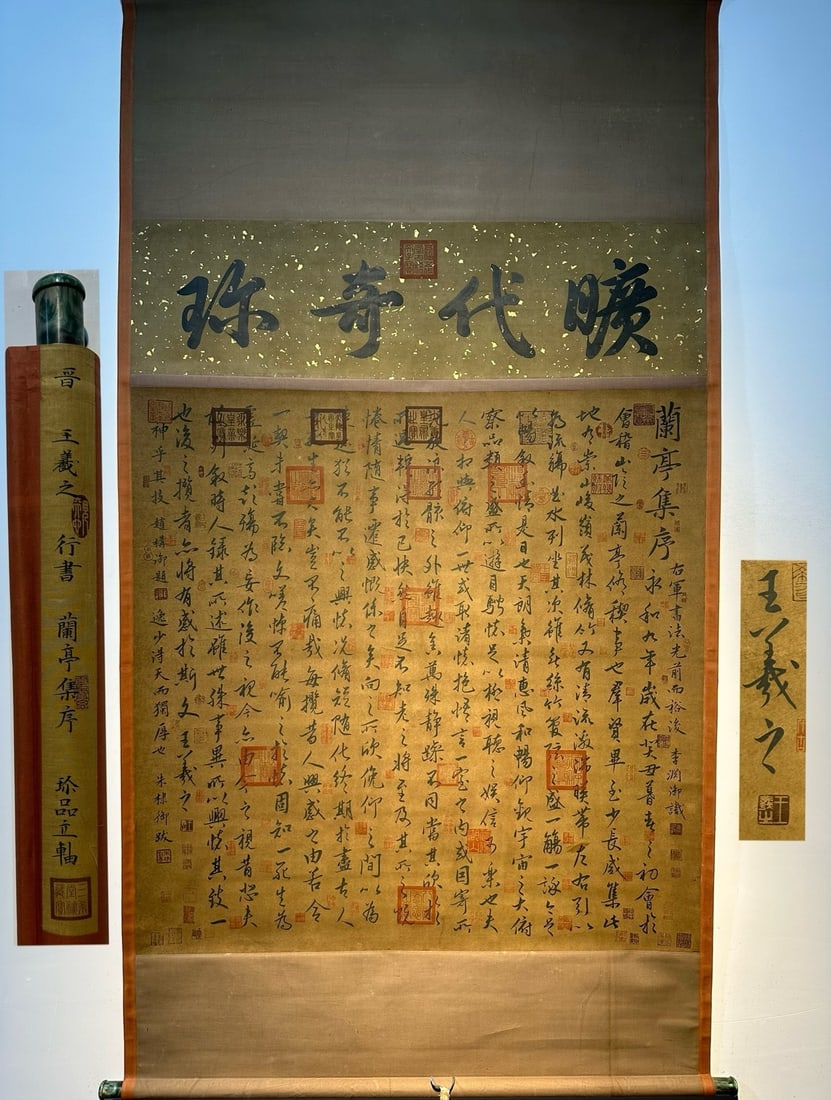 曠代奇珍
蘭亭集序
右軍書法光前而裕後 李淵御識
永和九年歲在癸丑暮春之初會於
會稽山陰之蘭亭脩稧事也群賢畢至少長咸集此
地有崇山峻領茂林脩竹又有清流激湍暎帶左右引以
為流觴曲水列坐其次雖無絲竹管弦之盛一觴一詠亦足
以暢敘幽情是日也天朗氣清惠風和暢仰觀宇宙之大俯
察品類之盛所以遊目騁懷足以極視聽之娛信可樂也夫
人之相與俯仰一世或取諸懷抱悟言一室之內或因寄所
浪形骸之外雖趣舍萬殊靜躁不同當其欣於
所遇輒得於己快然自足不知老之將至及其所之既
惓情隨事遷感慨係之矣向之所欣俛仰之間以為
迹猶不能不以之興懷況脩短隨化終期於盡古人
生亦大矣豈不痛哉每攬昔人興感之由若合
一契未嘗不臨文嗟悼不能喻之於懷固知一死生為
虛誕齊彭殤為妄作後之視今亦由今之視昔悲夫
故列敘時人錄其所述雖世殊事異所以興懷其致一
也後之攬者亦將有感於斯文 王羲之
神乎其技 趙禎御題 逸少得天而獨厚也 朱棣御跋
晉 王羲之 行書 蘭亭集序 珍品立軸
王羲之